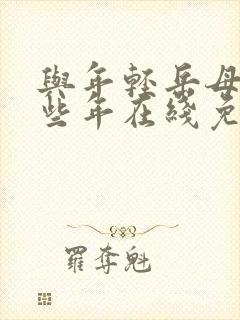 與年輕岳母
些年在綫免
羅奪魁